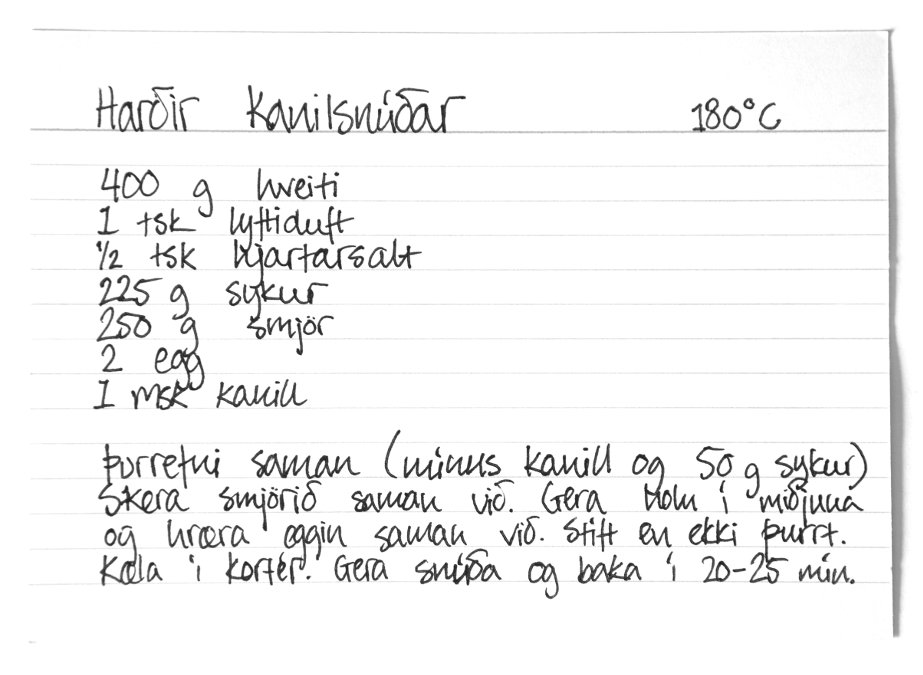 Harðir Kanilsnúðar 180°C
400 g hveiti
1 tsk lyftiduft
1/2 tsk hjartarsalt
225 g sykur
250 g smjör
2 egg
1 msk kanill
Þurrefni saman (mínus kanill og 50 g sykur)
Skera smjörið saman við. Gera holu í miðjuna
og hræra eggin saman við. Stíft en ekki þurrt.
Kæla í kortér. Gera snúða og baka í 20-25 mín.